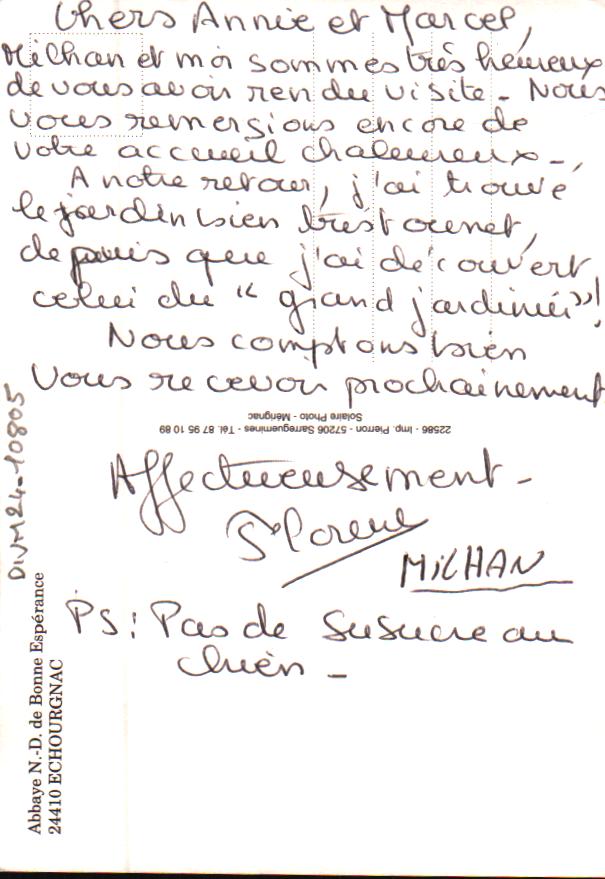 Chers Annie et Marcel,
Milhan et moi sommes très heureux
de vous avoir rendu visite - Nous
vous remersions encore de
votre accueil chaleureux -,
A notre retour, j'ai trouvé
le jardin bien tristounet,
depuis que j'ai découvert
celui du " grand jardinier"!
Nous comptons bien
Vous recevoir prochainement
22586 - Imp. Pierron - 57206 Sarreguemines - Tél. 87 95 10 89
Solaire Photo - Mérignac
Affectueusement -
MILHAN
PS: Pas de susucre au
chien -
DIVM24-10805
Abbaye N.-D. de Bonne Espérance
24410 ECHOURGNAC